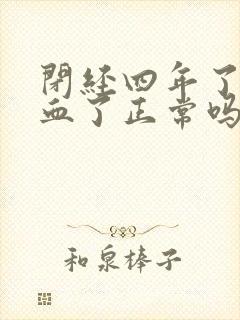 閉経四年了
血了正常吗
和泉棒子